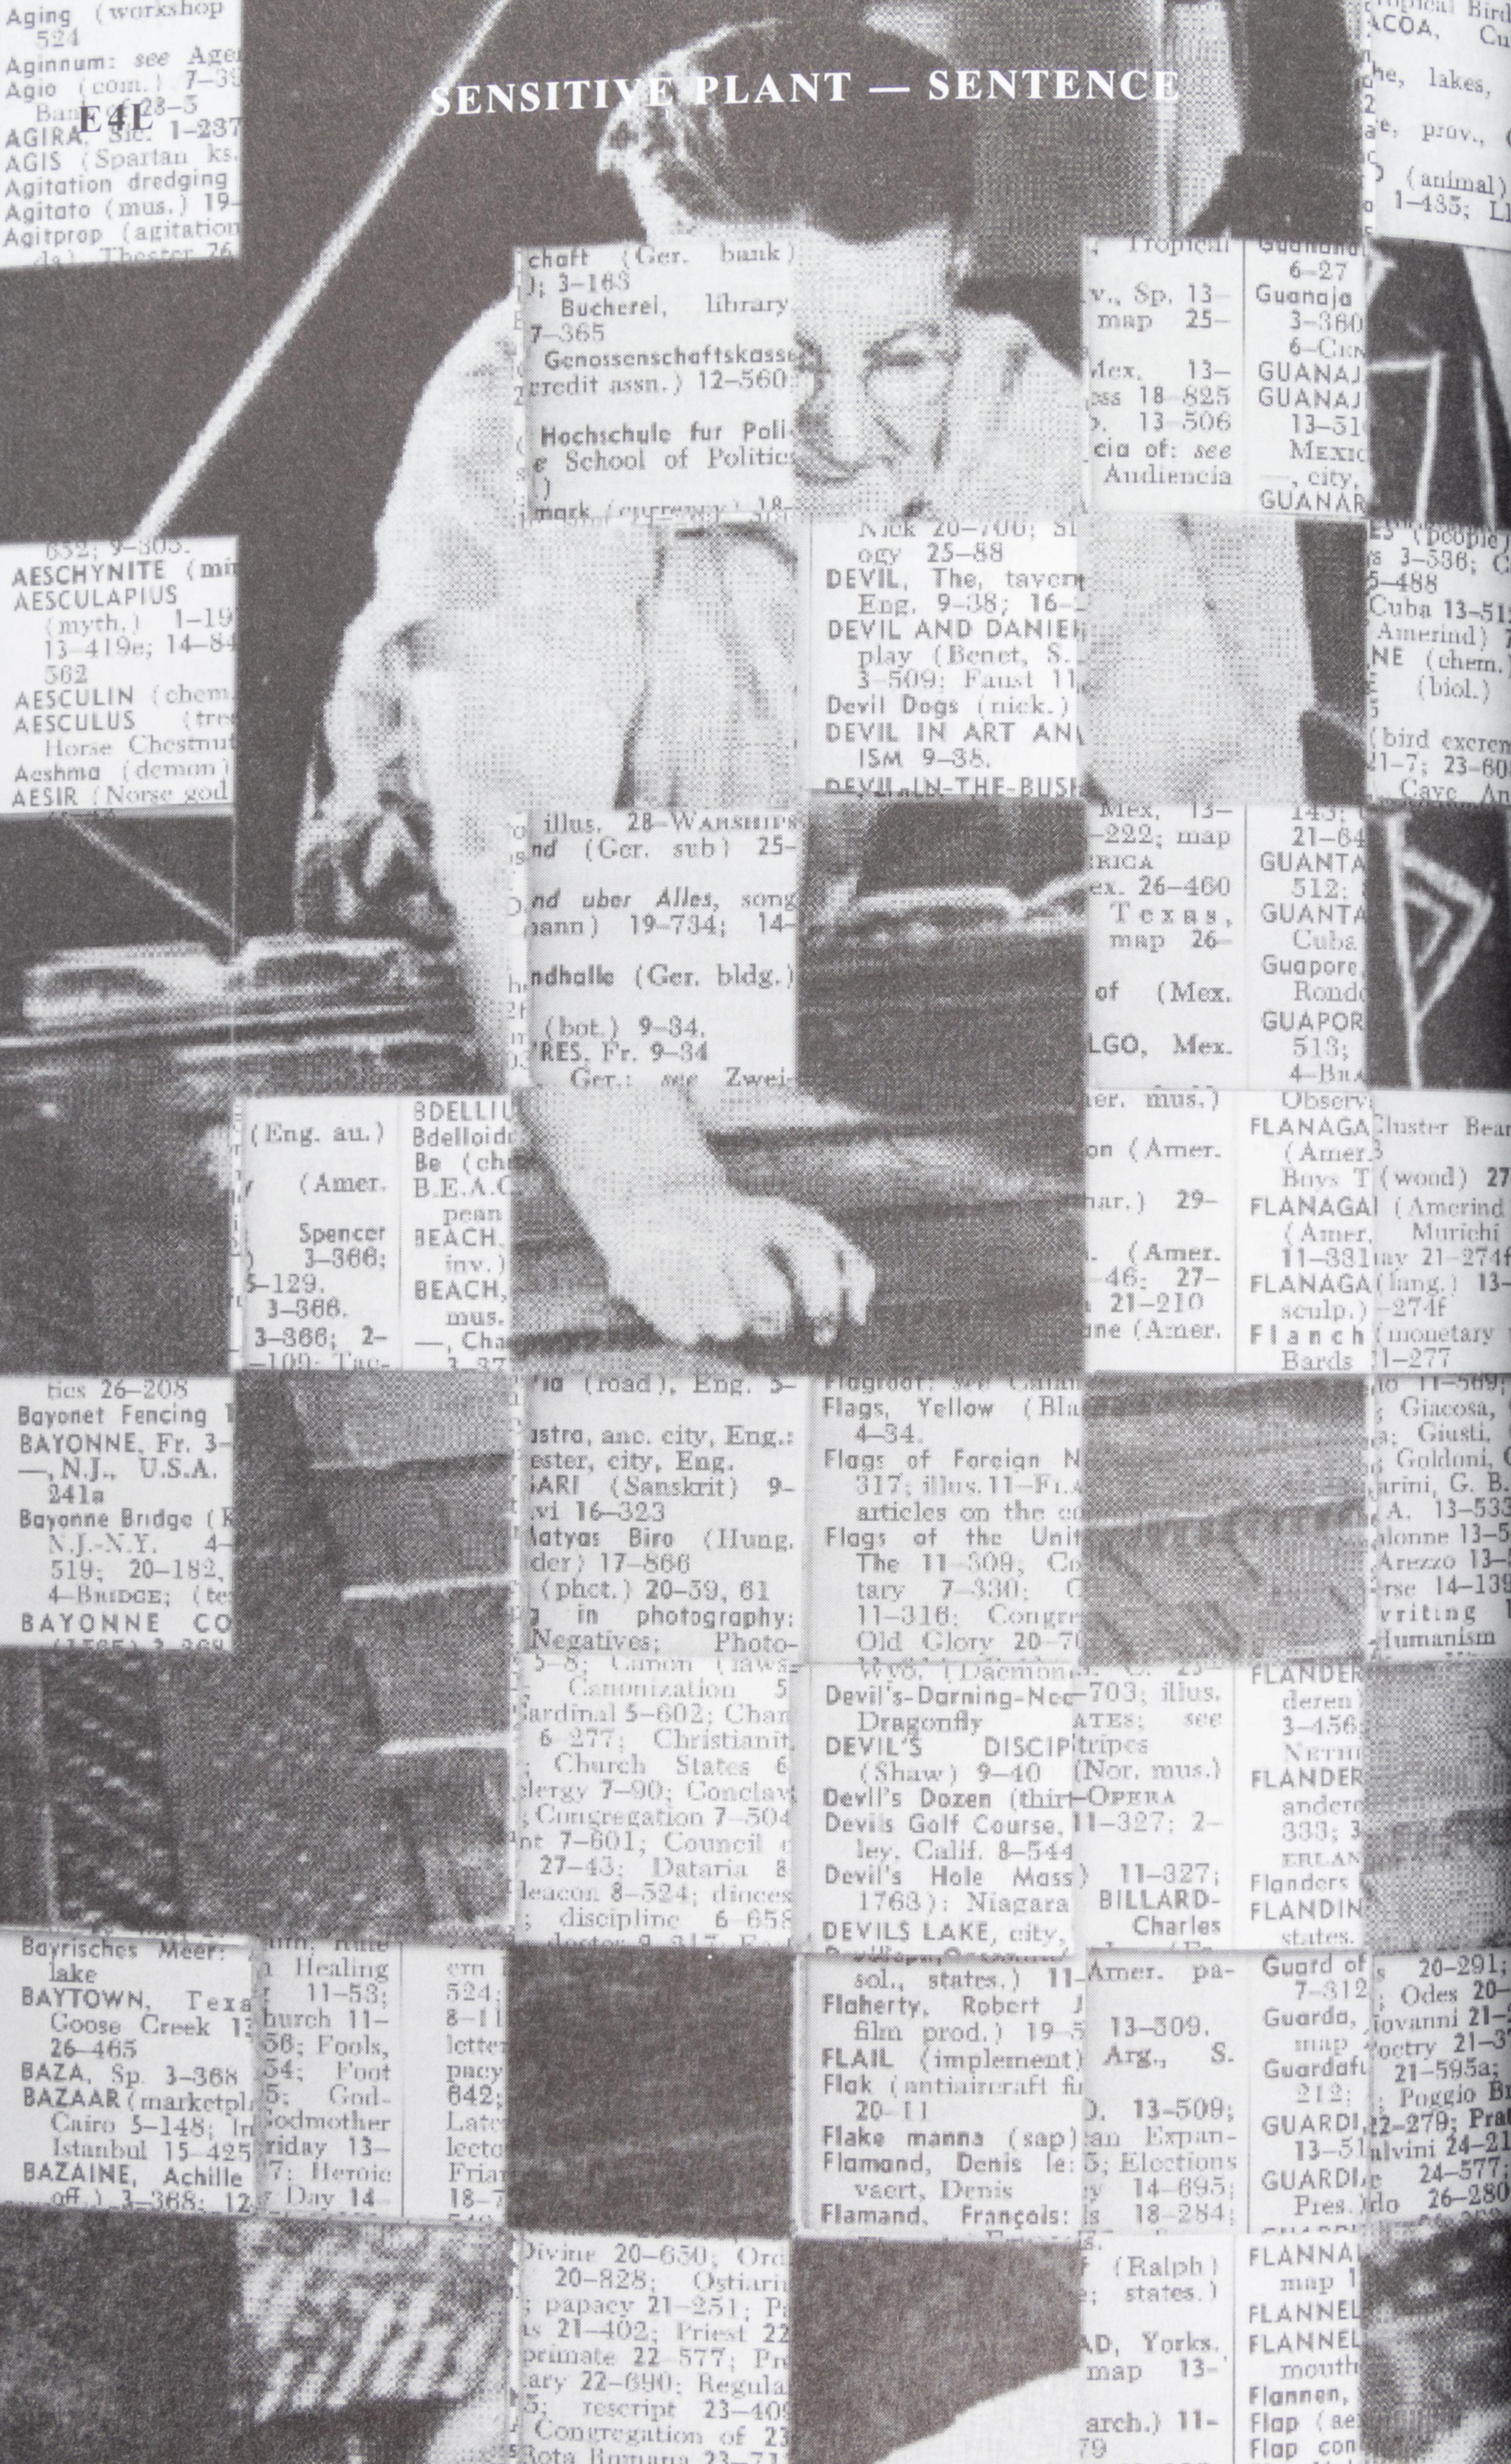 Aging (workshop
524
Aginnum: see Age
Agio (com.) 7–39
28–5
E4L
AGIRA, Sic. 1–237
AGIS (Spartan ks.
Agitation dredging
Agitato (mus.) 19–
Agitprop (agitation
Theater 26
SENSITIVE PLANT — SENTENCE
Tropical Bird
ACOA, Cu
he, lakes,
prov.,
(animal)
1–435; Ll
chaft (Ger. bank)
); 3–163
Bucherei, library
7–365
Genossenschaftskasse
credit assn.) 12–560
Hochschule fur Poli-
e School of Politics
)
mark (currency) 18–
Tropical
v., Sp. 13–
map 25–
Mex. 13–
oss 18–825
13–506
cia of: see
Audiencia
6–27
Guanaja
3–360
6–CEN
GUANAJ
GUANAJ
13–51
MEXIC
—, city,
GUANAR
AESCHYNITE (min
AESCULAPIUS
(myth.) 1–19
13–419e; 14–84
562
AESCULIN (chem.
AESCULUS (tree
Horse Chestnut
Aeshma (demon)
AESIR (Norse god
Nick 20–700;
ogy 25–88
DEVIL, The, tavern
Eng. 9–38; 16–
DEVIL AND DANIEL
play (Benet, S.
3–509; Faust 11
Devil Dogs (nick.)
DEVIL IN ART AN
ISM 9–38.
DEVIL-IN-THE-BUSH
(people)
3–536;
5–488
Cuba 13–51
Amerind)
NE (chem.
(biol.)
5
(bird excrem
21–7; 23–60
Cave, An
illus. 28–WARSHIPS
nd (Ger. sub) 25–
nd uber Alles, song
mann) 19–734; 14–
ndhalle (Ger. bldg.)
(bot.) 9–34.
RES, Fr. 9–34
Ger.: see Zwei-
Mex, 13–
–222; map
ERICA
ex. 26–460
Texas,
map 26–
of (Mex.
LGO, Mex.
21–64
GUANTA
512;
GUANTA
Cuba
Guapore
Rondo
GUAPOR
513;
4–BRA
(Eng. au.)
(Amer.
Spencer
3–366;
5–129.
3–366.
3–366; 2–
–109; Tac-
BDELLIU
Bdelloid
Be (che
B.E.A.C
pean
BEACH,
inv.)
BEACH,
mus.
—, Cha
3–37
er. mus.)
on (Amer.
har.) 29–
(Amer.
–46; 27–
21–210
ane (Amer.
Observ
FLANAGA
(Amer.
Boys T
FLANAGA
(Amer.
11–331
FLANAGA
sculp.)
Flanch
Bards
Cluster Bear
3
(wood) 27
(Amerind
Murichi
uay 21–274f
(lang.) 13–
–274f
(monetary
1–277
tics 26–208
Bayonet Fencing 1
BAYONNE, Fr. 3–
—, N.J., U.S.A.
241a
Bayonne Bridge (K
N.J.-N.Y. 4–
519; 20–182,
4–BRIDGE; (te
BAYONNE CO
(road), Eng. 5–
astra, anc. city, Eng.:
ester, city, Eng.
ARI (Sanskrit) 9–
vi 16–323
Matyas Biro (Hung.
der) 17–866
(phot.) 20–59, 61
in photography:
Negatives; Photo-
Flagroot: see Calam
Flags, Yellow (Bla
4–34.
Flags of Foreign N
317; illus. 11–FLA
articles on the co
Flags of the Unit
The 11–309; Co
tary 7–330; C
11–316; Congre
Old Glory 20–70
Giacosa,
Giusti,
Goldoni,
arini, G. B.
A. 13–533
alonne 13–5
Arezzo 13–
rse 14–139
writing
Humanism
5–8; Canon (laws
Canonization 5
Cardinal 5–602; Chan
6–277; Christianit
Church States 6
clergy 7–90; Conclav
Congregation 7–504
nt 7–601; Council
27–43; Dataria 8
deacon 8–524; dioces
discipline 6–658
Devil's-Darning-Nee
Dragonfly
DEVIL'S DISCIP
(Shaw) 9–40
Devil's Dozen (thirt
Devils Golf Course,
ley, Calif. 8–544
Devil's Hole Mass
1763): Niagara
DEVILS LAKE, city,
–703; illus.
ATES; see
tripes
(Nor. mus.)
–OPERA
11–327; 2–
) 11–327;
BILLARD-
Charles
FLANDER
deren
3–456
NETHE
FLANDER
andere
333; 3
ERLAN
Flanders
FLANDIN
states.
Bayrisches Meer:
lake
BAYTOWN, Texa
Goose Creek 13
26–465
BAZA, Sp. 3–368
BAZAAR (marketpl
Cairo 5–148; In
Istanbul 15–425
BAZAINE, Achille
off.) 3–368; 12
Healing
11–53;
hurch 11–
56; Fools,
54; Foot
5; God-
Godmother
riday 13–
7; Heroic
Day 14–
ern
524;
8–11
letter
pacy
642;
Late
lecto
Friar
18–7
sol., states.) 11–
Flaherty, Robert J
film prod.) 19–5
FLAIL (implement)
Flak (antiaircraft fi
20–11
Flake manna (sap)
Flamand, Denis le:
vaert, Denis
Flamand, François:
Amer. pa-
13–309.
Arg., S.
13–509;
an Expan-
5; Elections
14–695;
18–284;
Guard of
7–312
Guarda,
map
Guardafu
212;
GUARDI,
13–51
GUARDIA
Pres.)
20–291;
Odes 20–
iovanni 21–
oetry 21–3
21–595a;
Poggio Br
22–279; Prat
alvini 24–21
24–577;
do 26–280
Divine 20–650; Ord
20–828; Ostiari
papacy 21–251; Pa
is 21–402; Priest 22
primate 22–577; Pr
ary 22–690; Regula
5; rescript 23–409
Congregation of 23
Rota Romana 23–71
(Ralph)
states.)
AD, Yorks.
map 13–
arch.) 11–
79
FLANNA
map 1
FLANNEL
FLANNEL
mouth
Flannen,
Flap (ae
Flap con